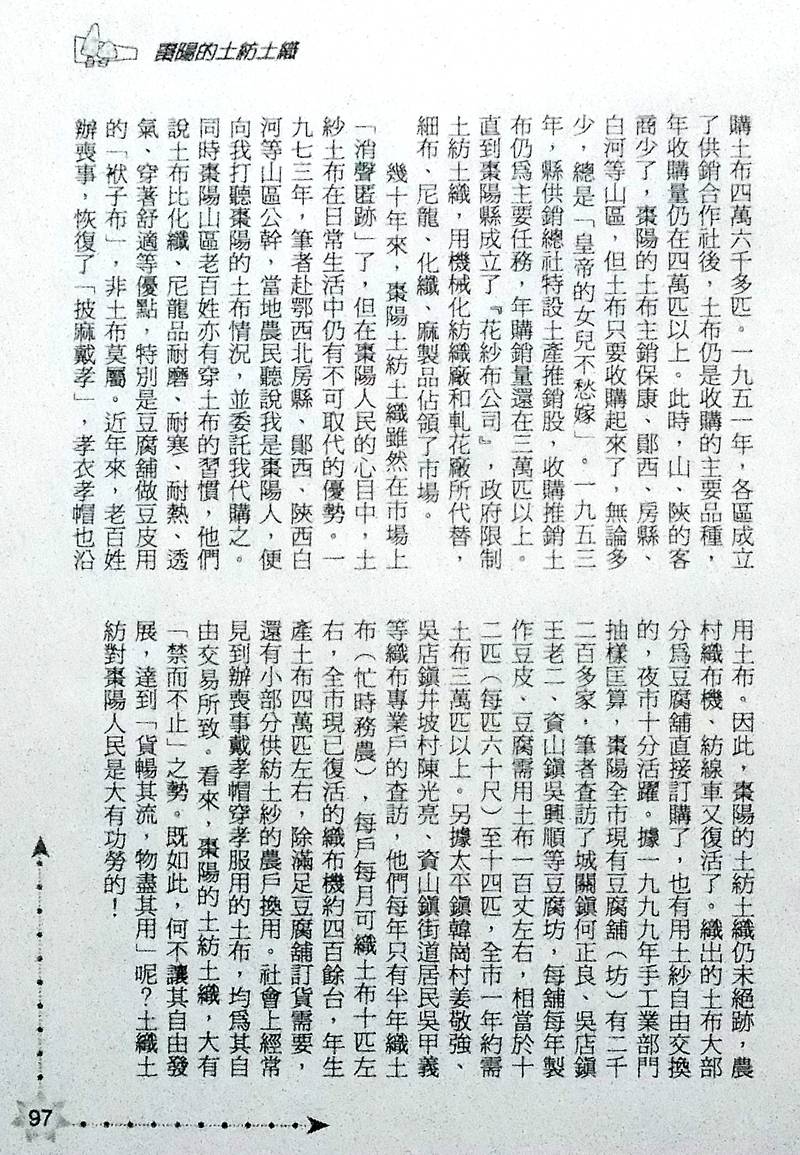 棗陽的土紡土織
購土布四萬六千多匹。一九五一年，各區成立
了供銷合作社後，土布仍是收購的主要品種，
年收購量仍在四萬匹以上。此時，山、陝的客
商少了，棗陽的土布主銷保康、鄖西、房縣、
白河等山區，但土布只要收購起來了，無論多
少，總是「皇帝的女兒不愁嫁」。一九五三
年，縣供銷總社特設土產推銷股，收購推銷土
布仍為主要任務，年購銷量還在三萬匹以上。
直到棗陽縣成立了『花紗布公司』，政府限制
土紡土織，用機械化紡織廠和軋花廠所代替，
細布、尼龍、化纖、麻製品佔領了市場。
幾十年來，棗陽土紡土織雖然在市場上
「消聲匿跡」了，但在棗陽人民的心目中，土
紗土布在日常生活中仍有不可取代的優勢。一
九七三年，筆者赴鄂西北房縣、鄖西、陝西白
河等山區公幹，當地農民聽說我是棗陽人，便
向我打聽棗陽的土布情況，並委託我代購之。
同時棗陽山區老百姓亦有穿土布的習慣，他們
說土布比化纖、尼龍品耐磨、耐寒、耐熱、透
氣、穿著舒適等優點，特別是豆腐舖做豆皮用
的「袱子布」，非土布莫屬。近年來，老百姓
辦喪事，恢復了「披麻戴孝」，孝衣孝帽也沿
用土布。因此，棗陽的土紡土織仍未絕跡，農
村織布機、紡線車又復活了。織出的土布大部
分為豆腐舖直接訂購了，也有用土紗自由交換
的，夜市十分活躍。據一九九九年手工業部門
抽樣匡算，棗陽全市現有豆腐舖（坊）有二千
二百多家，筆者查訪了城關鎮何正良、吳店鎮
王老二、資山鎮吳興順等豆腐坊，每舖每年製
作豆皮、豆腐需用土布一百丈左右，相當於十
二匹（每匹六十尺）至十四匹，全市一年約需
土布三萬匹以上。另據太平鎮韓崗村姜敬強、
吳店鎮井坡村陳光亮、資山鎮街道居民吳甲義
等織布專業戶的查訪，他們每年只有半年織土
布（忙時務農），每戶每月可織土布十匹左
右，全市現已復活的織布機約四百餘台，年生
產土布四萬匹左右，除滿足豆腐舖訂貨需要，
還有小部分供紡土紗的農戶換用。社會上經常
見到辦喪事戴孝帽穿孝服用的土布，均為其自
由交易所致。看來，棗陽的土紡土織，大有
「禁而不止」之勢。既如此，何不讓其自由發
展，達到「貨暢其流，物盡其用」呢？土織土
紡對棗陽人民是大有功勞的！
97